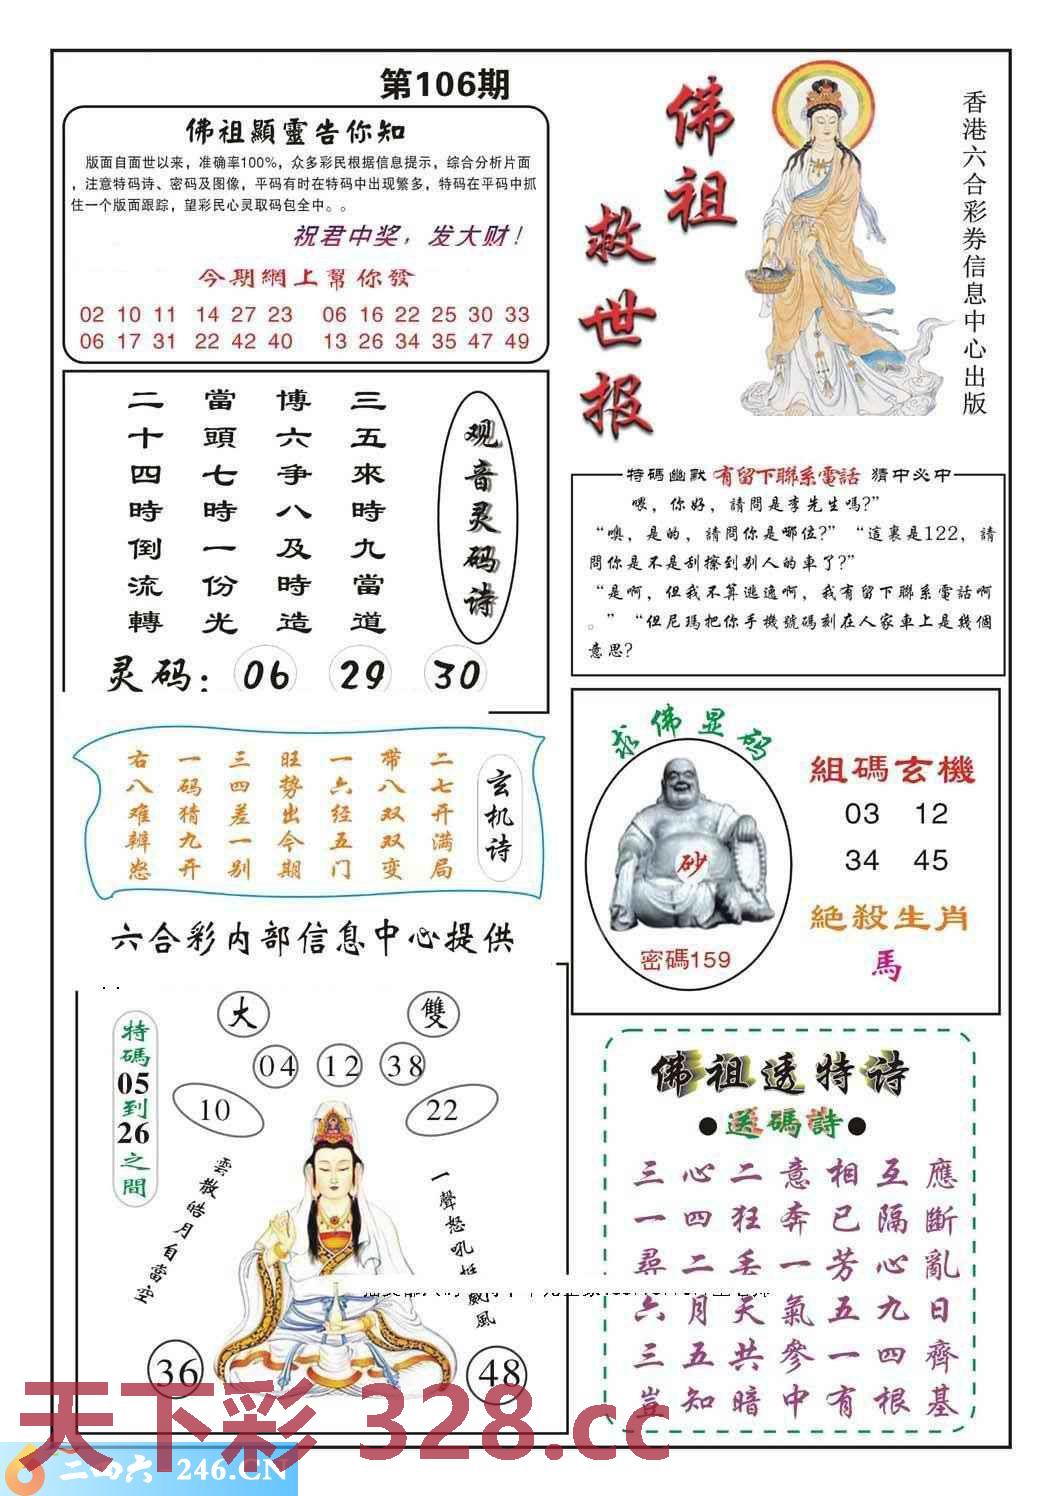 第106期
佛祖顯靈告你知
版面自面世以来，准确率100%，众多彩民根据信息提示，综合分析片面
，注意特码诗、密码及图像，平码有时在特码中出现繁多，特码在平码中抓
住一个版面跟踪，望彩民心灵取码包全中。。
祝君中奖，发大财！
今期網上幫你發
02 10 11 14 27 23 06 16 22 25 30 33
06 17 31 22 42 40 13 26 34 35 47 49
佛祖
救世报
香港六合彩券信息中心出版
观音灵码诗
三五來時九當道
博六爭八及時造
當頭七時一份光
二十四時倒流轉
灵码：06 29 30
特碼幽默 有留下聯系電話 猜中必中
喂，你好，請問是李先生嗎?”
“噢，是的，請問你是哪位?”“這裏是122，請
問你是不是刮擦到别人的車了?”
“是啊，但我不算逃逸啊，我有留下聯系電話啊
。”“但尼瑪把你手機號碼刻在人家車上是幾個
意思?
玄机诗
二七开满局
带八双双变
一六经五门
旺势出今期
三四差一别
一码猜九开
右八难辨愁
六合彩内部信息中心提供
求佛显码
砂
密碼159
組碼玄機
03 12
34 45
絕殺生肖
馬
大 雙
04 12 38
10 22
特碼05到26之間
雲散皓月自當空
一聲怒吼
威風
36 48
佛祖透特诗
●送碼詩●
三心二意相互應
一四狂奔已隔斷
尋二丢一芳心亂
六月天氣五九日
三五共參一四齊
豈知暗中有根基
天下彩 328.cc
二四六 246.CN